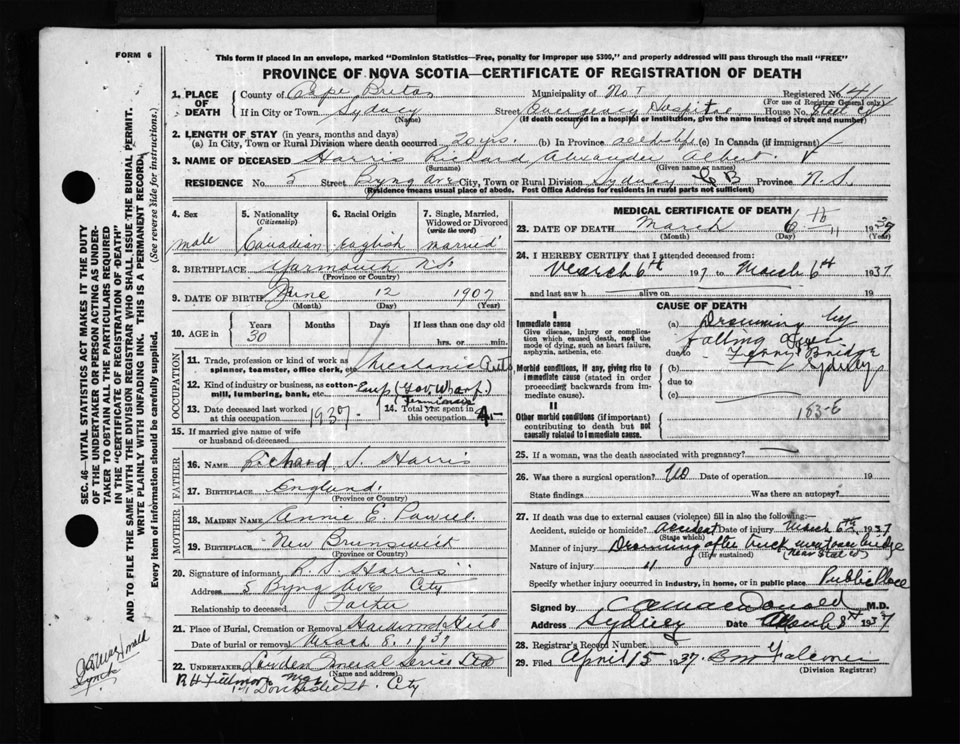 FORM 6
This form if placed in an envelope, marked "Dominion Statistics—Free, penalty for improper use $300," and properly addressed will pass through the mail "FREE"
PROVINCE OF NOVA SCOTIA—CERTIFICATE OF REGISTRATION OF DEATH
1. PLACE OF DEATH
County of Cape Breton Municipality of No. 1 Registered No. 141
(For use of Registrar General only)
If in City or Town Sydney Street Emergency Hospital House No. Steel Co
(Name) (If death occurred in a hospital or institution, give the name instead of street and number)
2. LENGTH OF STAY (in years, months and days)
(a) In City, Town or Rural Division where death occurred 20 yrs. (b) In Province (c) In Canada (if immigrant)
3. NAME OF DECEASED Harris Richard Alexander Albert
(Surname) (Given name or names)
RESIDENCE No. 5 Street Byng Ave City, Town or Rural Division Sydney C B Province N. S.
(Residence means usual place of abode. Post Office Address for residents in rural parts not sufficient)
4. Sex
male
5. Nationality (Citizenship)
Canadian
6. Racial Origin
English
7. Single, Married, Widowed or Divorced (write the word)
married
8. BIRTHPLACE Yarmouth N.S.
(Province or Country)
9. DATE OF BIRTH June 12 1907
(Month) (Day) (Year)
10. AGE in Years Months Days If less than one day
30 hrs. or min.
OCCUPATION
11. Trade, profession or kind of work as spinner, teamster, office clerk, etc. Mechanic Auto
12. Kind of industry or business, as cotton-mill, lumbering, bank, etc. Emp (Gov. Wharf.)
13. Date deceased last worked at this occupation 1937
14. Total yrs. spent in this occupation
15. If married give name of wife or husband of deceased
FATHER
16. NAME Richard S. Harris
17. BIRTHPLACE England.
(Province or Country)
MOTHER
18. MAIDEN NAME Annie E
19. BIRTHPLACE New Brunswick
(Province or Country)
20. Signature of informant R. S. Harris
Address 5 Byng Ave City
Relationship to deceased Father
21. Place of Burial, Cremation or Removal Hardwood Hill
Date of burial or removal March 8. 1937
22. UNDERTAKER Funeral Service Ltd
(Name and address)
R H Fillmore Mgr
Dorchester St. City
MEDICAL CERTIFICATE OF DEATH
23. DATE OF DEATH March 6th 1937
(Month) (Day) (Year)
24. I HEREBY CERTIFY that I attended deceased from:
March 6th 197 to March 6th 1937
and last saw h alive on 19
CAUSE OF DEATH
I
Immediate cause
Give disease, injury or complication which caused death, not the mode of dying, such as heart failure, asphyxia, asthenia, etc.
(a) Drowning by
falling
due to Ferry Bridge
Sydney
Morbid conditions, if any, giving rise to immediate cause (stated in order proceeding backwards from immediate cause).
(b)
due to
(c)
II
Other morbid conditions (if important) contributing to death but not causally related to immediate cause.
183-E
25. If a woman, was the death associated with pregnancy?
26. Was there a surgical operation? No Date of operation 19
State findings Was there an autopsy?
27. If death was due to external causes (violence) fill in also the following:—
Accident, suicide or homicide? accident Date of injury March 6th 1937
(State which)
Manner of injury Drowning after truck went over bridge
(How sustained)
Nature of injury "
Specify whether injury occurred in industry, in home, or in public place Public Place
Signed by MacDonald M.D.
Address Sydney Date March 8th 1937
28. Registrar's Record Number
29. Filed April 15 1937 Falconer
(Division Registrar)
SEC. 46—VITAL STATISTICS ACT MAKES IT THE DUTY
OF THE UNDERTAKER OR PERSON ACTING AS UNDER-
TAKER TO OBTAIN ALL THE PARTICULARS REQUIRED
IN THE "CERTIFICATE OF REGISTRATION OF DEATH"
AND TO FILE THE SAME WITH THE DIVISION REGISTRAR WHO SHALL ISSUE THE BURIAL PERMIT.
WRITE PLAINLY WITH UNFADING INK. THIS IS A PERMANENT RECORD.
Every item of information should be carefully supplied. (See reverse side for instructions.)